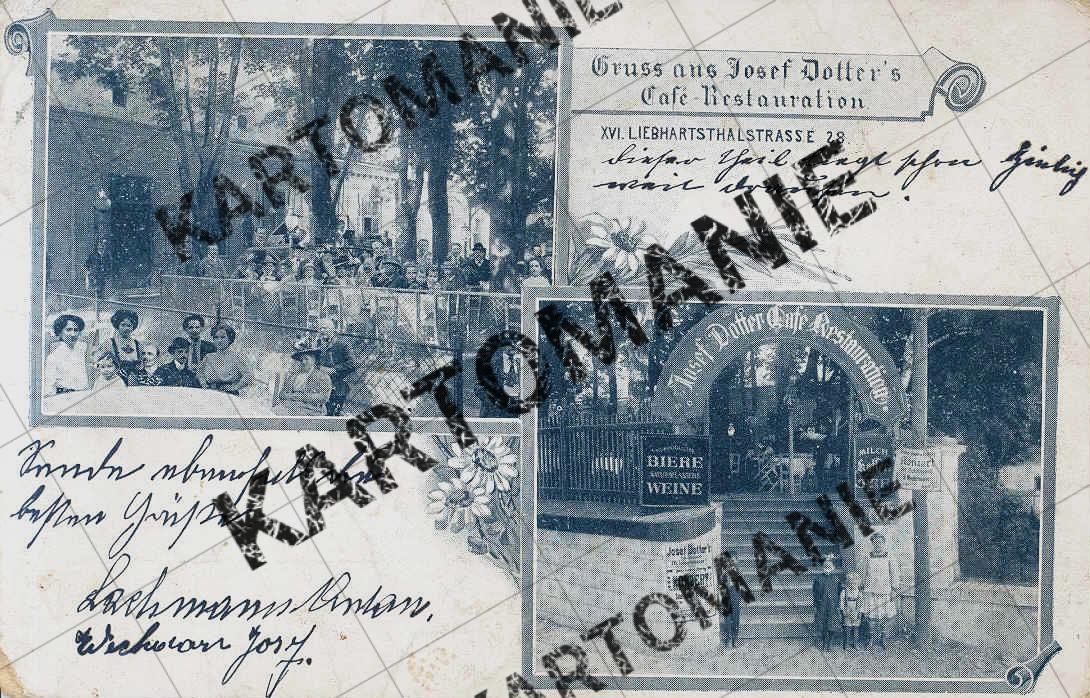 Gruss aus Josef Dotter's
Café-Restauration
XVI. LIEBHARTSTHALSTRASSE 28
dieser Theil liegt schon
weit draußen.
Josef Dotter Café Restauration
BIERE
WEINE
MILCH
Josef Dotter's
KONZERT
Sende ebenfalls die
besten Grüße
Lachmann Anton.
Josef.
KARTOMANIE
KARTOMANIE
KARTOMANIE
KARTOMANIE